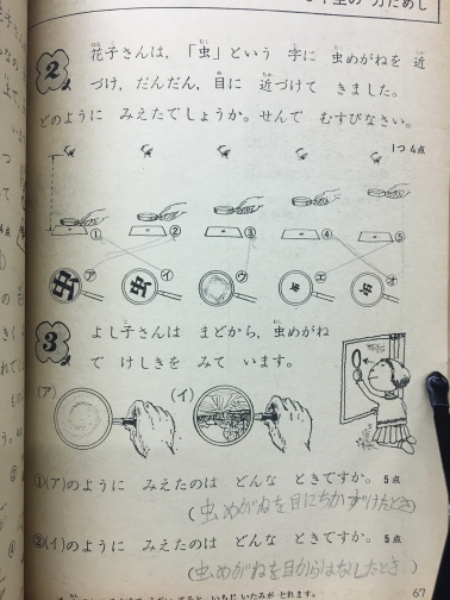 力だめし
2 花子さんは,「虫」という 字に 虫めがねを 近
づけ, だんだん, 目に 近づけて きました。
どのように みえたでしょうか。せんで むすびなさい。
1つ4点
① ② ③ ④ ⑤
虫 虫 虫 虫
ア イ ウ エ オ
3 よし子さんは まどから, 虫めがね
で けしきを みて います。
(ア) (イ)
①(ア)のように みえたのは どんな ときですか。5点
(虫めがねを目にちかずけたとき)
②(イ)のように みえたのは どんな ときですか。5点
(虫めがねを目からはなしたとき)
67